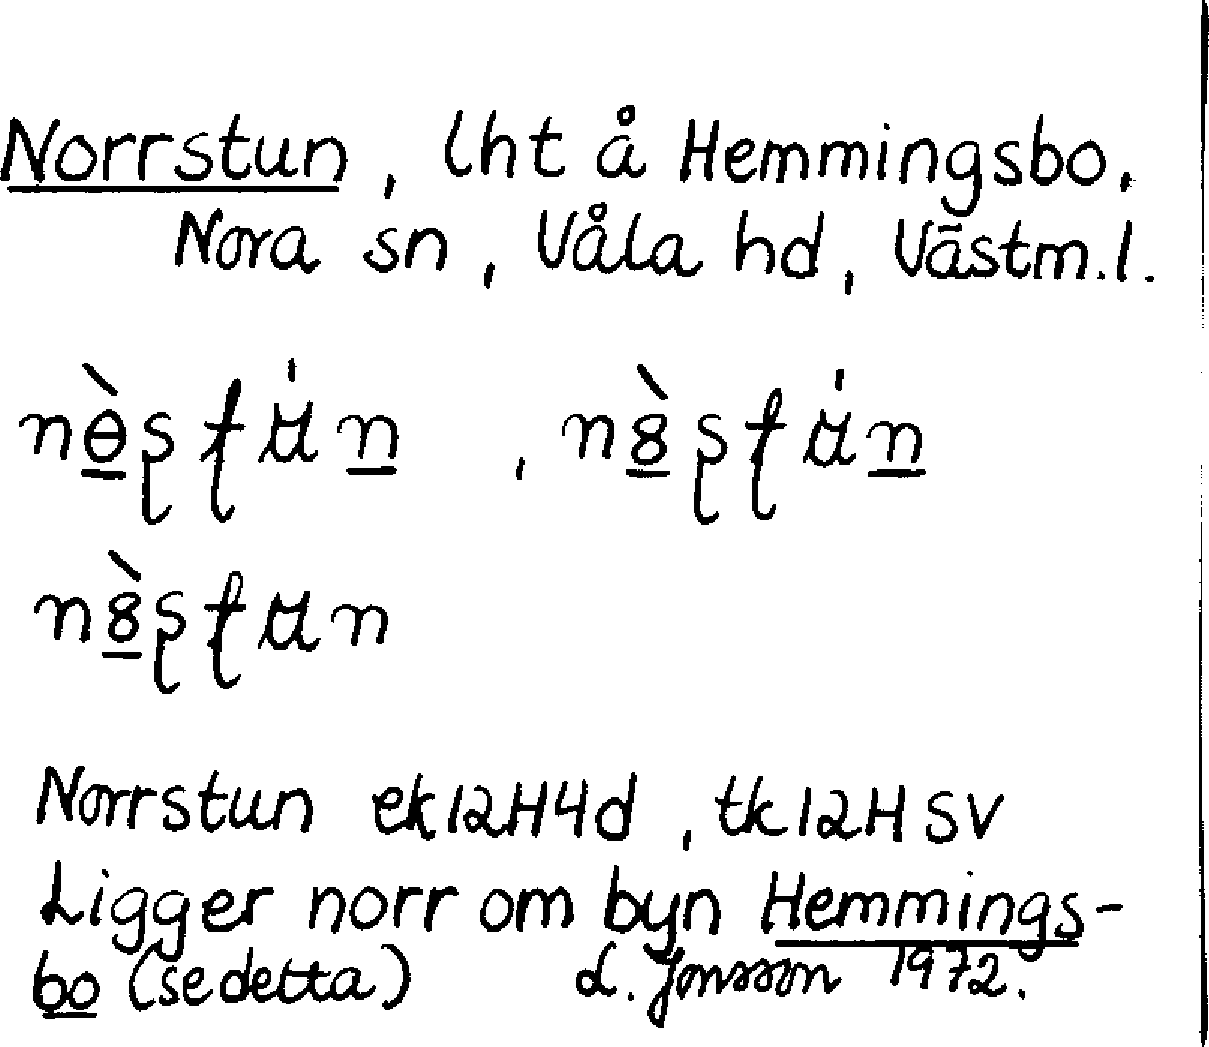 Norrstun, lht å Hemmingsbo,
Nora sn, Våla hd, Västm.l.
Norrstun ek12H4d, tk12H SV
Ligger norr om byn Hemmings-
bo (se detta) L. Jonsson 1972.